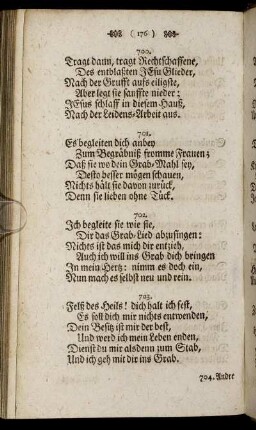 ( 176 )
700.
Tragt dann, tragt Rechtschaffene,
Des entblaßten JEsu Glieder,
Nach der Grufft aufs eiligste,
Aber legt sie sanffte nieder:
JEsus schlaff in diesem Hauß,
Nach der Leidens-Arbeit aus.
701.
Es begleiten dich anbey
Zum Begräbniß fromme Frauen;
Daß sie wo dein Grab-Mahl sey,
Desto besser mögen schauen,
Nichts hält sie davon zurück,
Denn sie lieben ohne Tück.
702.
Ich begleite sie wie sie,
Dir das Grab-Lied abzusingen:
Nichts ist das mich dir entzieh,
Auch ich will ins Grab dich bringen
In mein Hertz: nimm es doch ein,
Nun mach es selbst neu und rein.
703.
Felß des Heils! dich halt ich fest,
Es soll dich mir nichts entwenden,
Dein Besitz ist mir der best,
Und werd ich mein Leben enden,
Dienst du mir alsdenn zum Stab,
Und ich geh mit dir ins Grab.
704. Andre